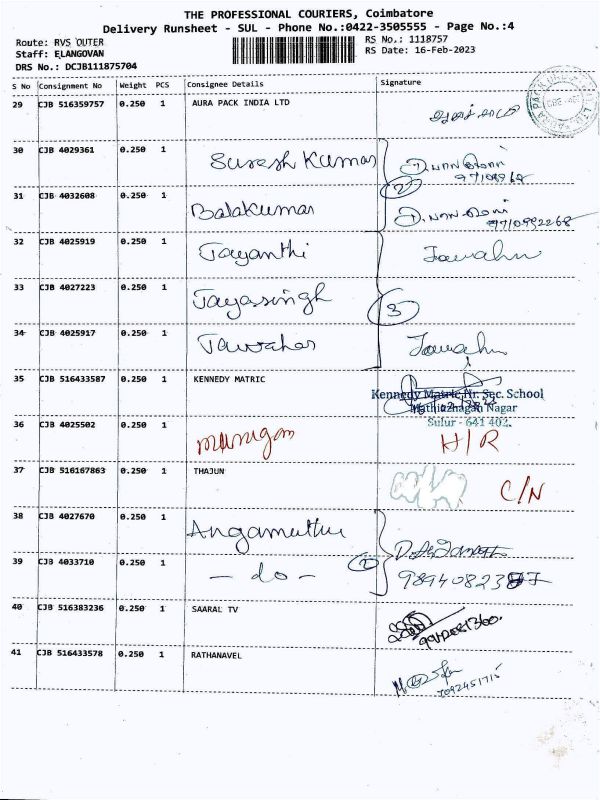 THE PROFESSIONAL COURIERS, Coimbatore
Delivery Runsheet - SUL - Phone No.:0422-3505555 - Page No.:4
Route: RVS OUTER
RS No.: 1118757
Staff: ELANGOVAN
RS Date: 16-Feb-2023
DRS No.: DCJB111875704
S No Consignment No Weight PCS Consignee Details Signature
29 CJB 516359757 0.250 1 AURA PACK INDIA LTD
30 CJB 4029361 0.250 1 Suresh Kumar
31 CJB 4032608 0.250 1 Balakumar
2
9710992268
32 CJB 4025919 0.250 1 Jayanthi Jawahar
33 CJB 4027223 0.250 1 Jayasingh 3
34 CJB 4025917 0.250 1 Jawahar Jawahar
35 CJB 516433587 0.250 1 KENNEDY MATRIC
Kennedy Matric Hr. Sec. School
Mathiazhagan Nagar
Sulur - 641 402.
36 CJB 4025502 0.250 1 murugan H/R
37 CJB 516167863 0.250 1 THAJUN C/N
38 CJB 4027670 0.250 1 Angamuthu
39 CJB 4033710 0.250 1 - do - 2
40 CJB 516383236 0.250 1 SAARAL TV
41 CJB 516433578 0.250 1 RATHANAVEL
7092451715